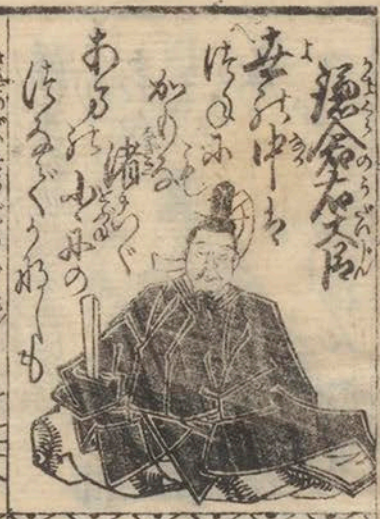 鎌倉右大臣
世の中は
つねに
もがもな
渚こぐ
あまの小舟の
つなでかなしも